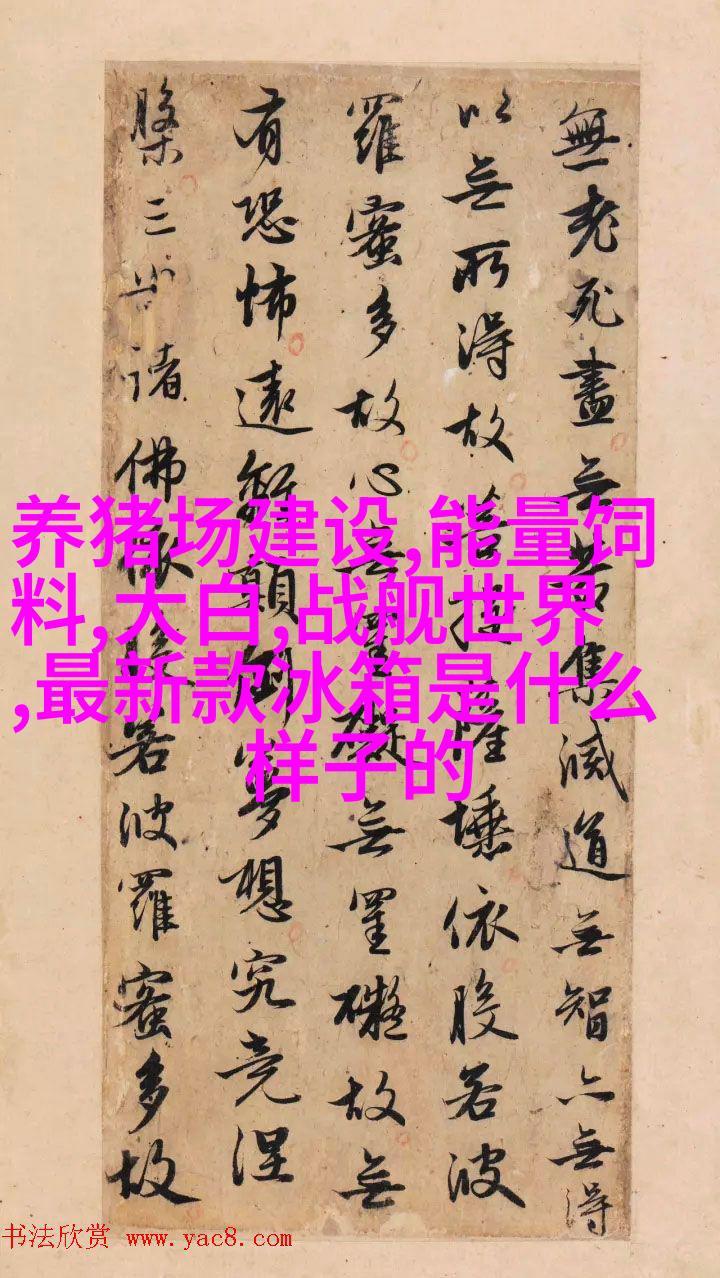 無老死盡無苦集滅道無智亦無得
以無所得故菩提薩埵依般若波
羅蜜多故心無罣礙無罣礙故無
有恐怖遠離顛倒夢想究竟涅
槃三世諸佛依般若波羅蜜多故
养猪场建设,能量饲
料,大白,战舰世界
,最新款冰箱是什么
样子的
书法欣赏 www.yac8.com